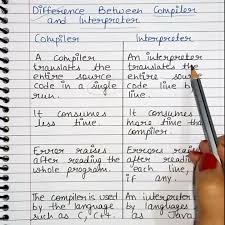 Difference Between Compiler
and Interpreter
Compiler
A compiler
translates the
entire source
code in a single
run.
It consumes
less time.
Error raises
after reading the
whole program.
The compiler is used
by the language
such as C, C++.
Interpreter
An interpreter
translates the
entire
code line by
line.
It consumes
more time than
compiler.
Errors
after reading
each line,
if any.
An interpreter
by languages
as Java